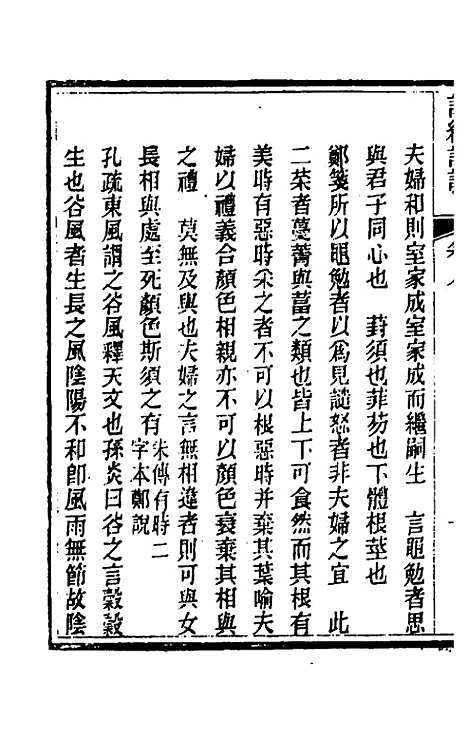 夫婦和則室家成室家成而繼嗣生　言黽勉者思
與君子同心也　葑須也菲芴也下體根莖也
鄭箋所以黽勉者以爲見譴怒者非夫婦之宜　此
二菜者蔓菁與葍之類也皆上下可食然而其根有
美時有惡時采之者不可以根惡時并棄其葉喻夫
婦以禮義合顏色相親亦不可以顏色衰棄其相與
之禮　莫無及與也夫婦之言無相違者則可與女
長相與處至死顏色斯須之有朱傳有時二
字本鄭說
孔疏東風謂之谷風釋天文也孫炎曰谷之言穀穀
生也谷風者生長之風陰陽不和卽風雨無節故陰